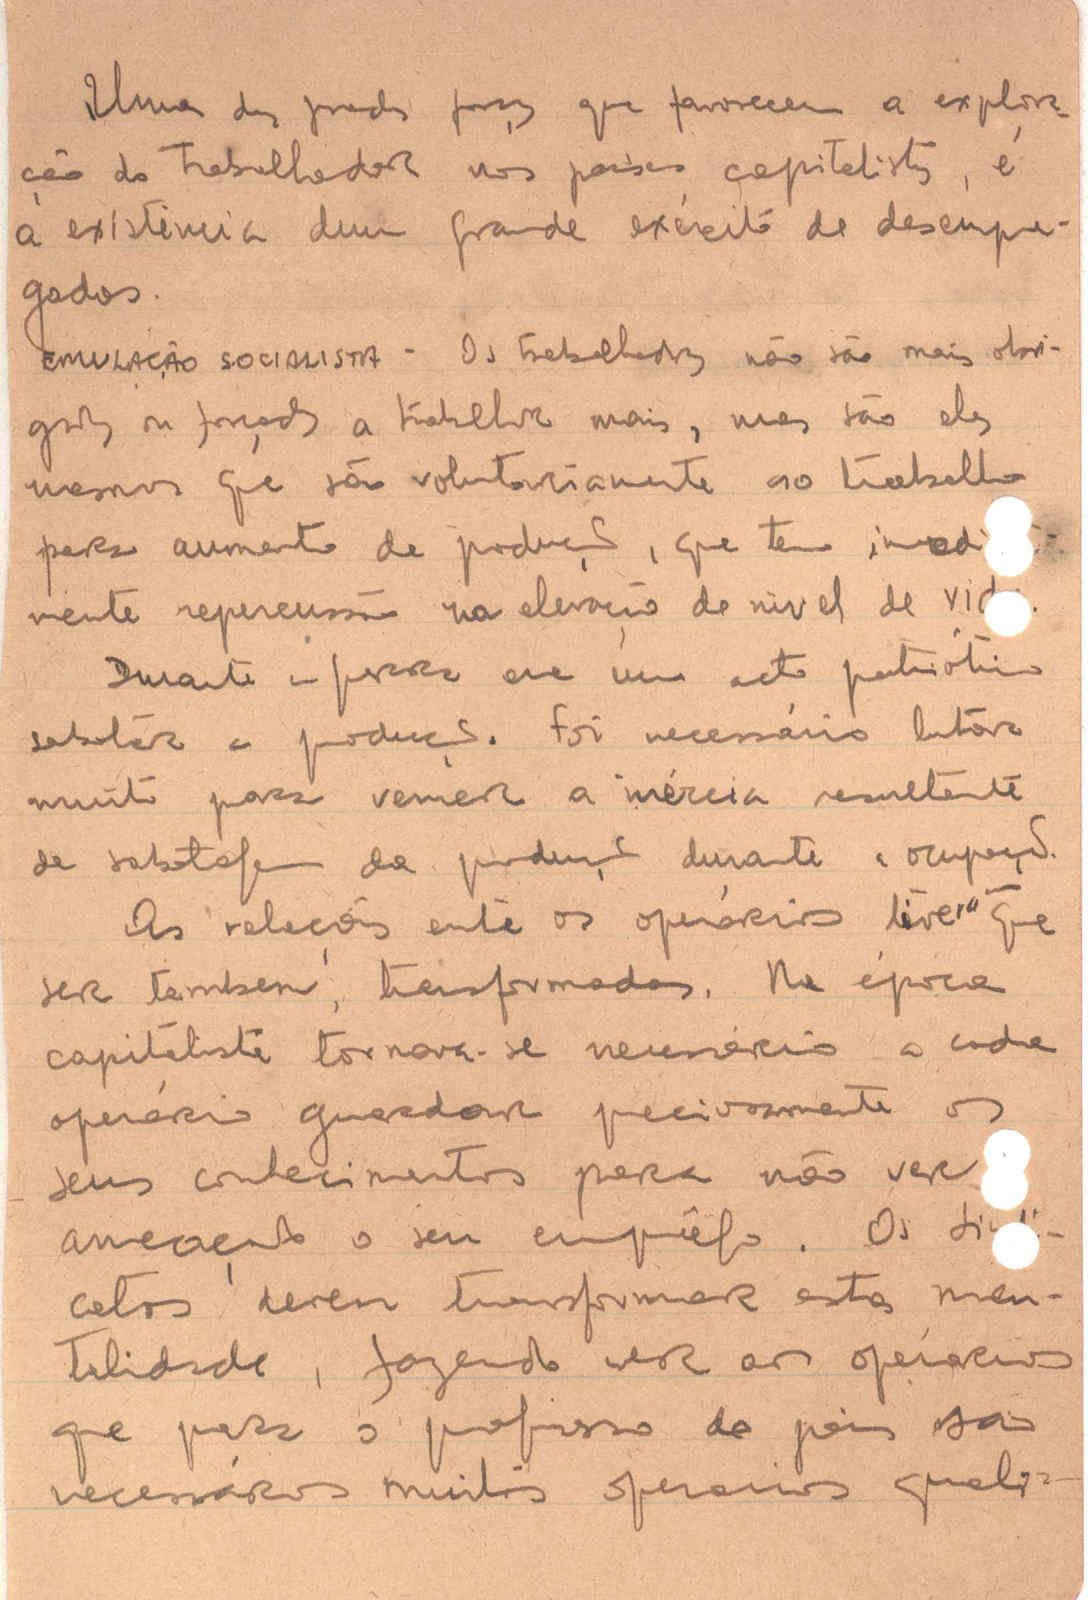 Uma das grandes forças que favorecem a explora-
ção do trabalhador nos países capitalistas, é
a existência dum grande exército de desempre-
gados.
EMULAÇÃO SOCIALISTA - Os trabalhadores não são mais obri-
gados ou forçados a trabalhar mais, mas são eles
mesmos que vão voluntariamente ao trabalho
para aumento de produção, que tem imedi
mente repercussão na elevação de nivel de vida.
Durante a guerra era um acto patriótico
sabotar a produção. Foi necessário lutar
muito para vencer a inércia resultante
da sabotagem da produção durante a ocupação.
As relações entre os operários tiveram que
ser tambem, transformadas. Na época
capitalista tornava-se necessário a cada
operário guardar preciosamente os
seus conhecimentos para não ver
ameaçado o seu emprêgo. Os sindi-
catos devem transformar esta men-
talidade, fazendo ver aos operários
que para o progresso do país são
necessários muitos operarios quali-